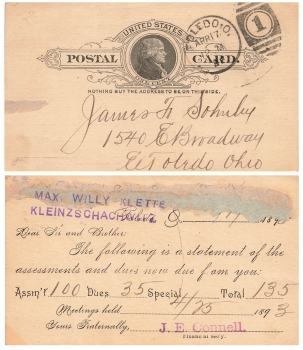 UNITED STATES
POSTAL CARD.
ONE CENT
TOLEDO, O.
APR 17
1
NOTHING BUT THE ADDRESS TO BE ON THIS SIDE.
James H
1540 E Broadway
E Toledo Ohio
MAX WILLY KLETTE
KLEINZSCHACHWITZ
189
Dear Sir and Brother
The following is a statement of the
assessments and dues now due from you:
Assm't 100 Dues 35 Special Total 135
Meetings held 4/25 1893
Yours Fraternally,
J. E. Connell.
Financial Secy.